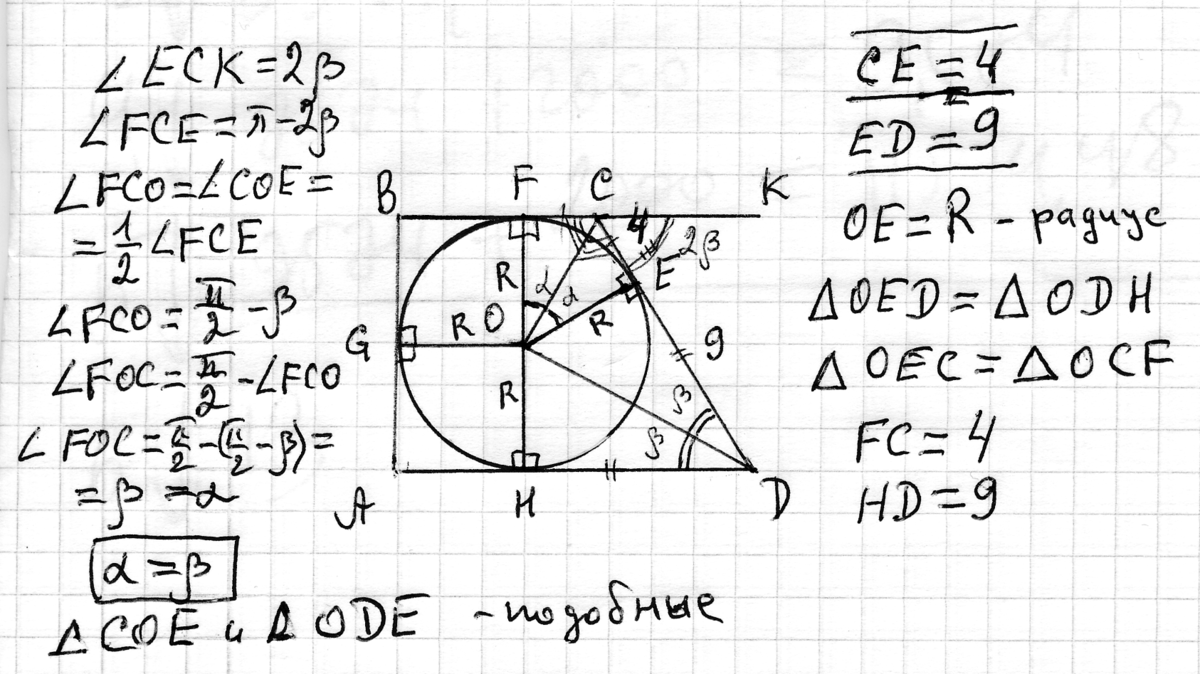 ∠ECK = 2β
∠FCE = π - 2β
∠FCO = ∠COE =
= 1/2 ∠FCE
∠FCO = π/2 - β
∠FOC = π/2 - ∠FCO
∠FOC = π/2 - (π/2 - β) =
= β = α
α = β
△COE и △ODE - подобные
B F C K
4
2β
R α α E
G R O R 9
R β β
A H D
CE = 4
ED = 9
OE = R - радиус
△OED = △ODH
△OEC = △OCF
FC = 4
HD = 9